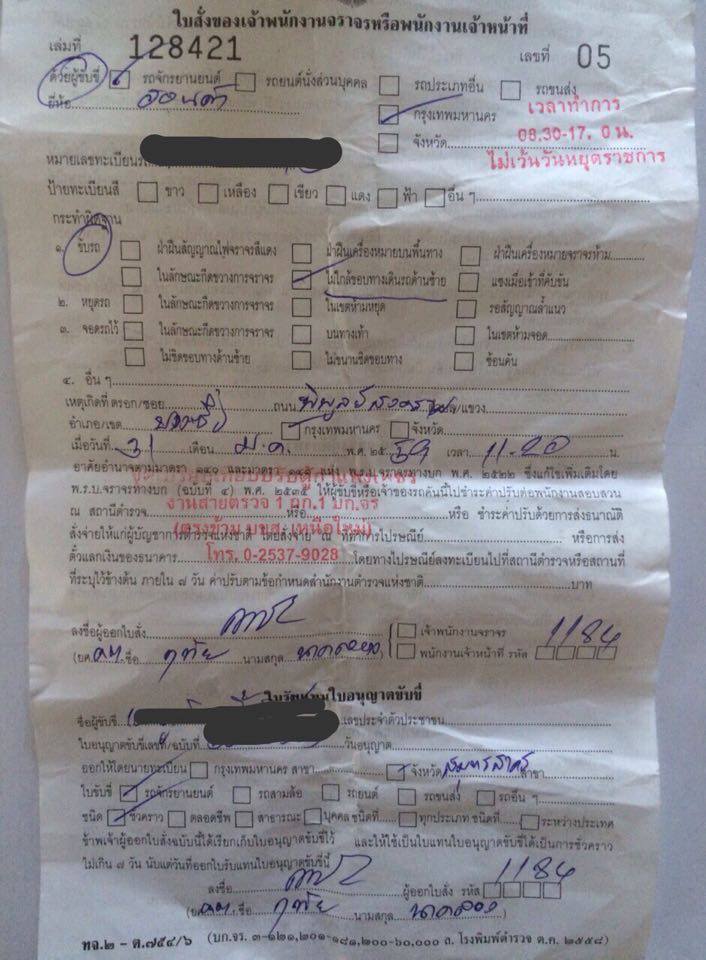 ใบสั่งของเจ้าพนักงานจราจรหรือพนักงานเจ้าหน้าที่
เล่มที่ 128421 เลขที่ 05
ด้วยผู้ขับขี่ รถจักรยานยนต์ รถยนต์นั่งส่วนบุคคล รถประเภทอื่น รถขนส่ง
ยี่ห้อ ฮอนด้า กรุงเทพมหานคร
จังหวัด
เวลาทำการ
08.30-17. 0 น.
ไม่เว้นวันหยุดราชการ
หมายเลขทะเบียนรถ
ป้ายทะเบียนสี ขาว เหลือง เขียว แดง ฟ้า อื่น ๆ
กระทำผิดฐาน
๑. ขับรถ ฝ่าฝืนสัญญาณไฟจราจรสีแดง ฝ่าฝืนเครื่องหมายบนพื้นทาง ฝ่าฝืนเครื่องหมายจราจรห้าม
ในลักษณะกีดขวางการจราจร ไม่ใกล้ขอบทางเดินรถด้านซ้าย แซงเมื่อเข้าที่คับขัน
๒. หยุดรถ ในลักษณะกีดขวางการจราจร ในเขตห้ามหยุด รอสัญญาณล้ำแนว
๓. จอดรถไว้ ในลักษณะกีดขวางการจราจร บนทางเท้า ในเขตห้ามจอด
ไม่ชิดขอบทางด้านซ้าย ไม่ขนานชิดขอบทาง ซ้อนคัน
๔. อื่น ๆ
เหตุเกิดที่ ตรอก/ซอย ถนน พิบูลย์สงคราม /แขวง
อำเภอ/เขต บางซื่อ กรุงเทพมหานคร จังหวัด
เมื่อวันที่ 31 เดือน ม.ค. พ.ศ. ๒๕ 59 เวลา 11.20 น.
อาศัยอำนาจตามมาตรา ๑๔๐ และมาตรา ๑๔๕ แห่ง พ.ร.บ.จราจรทางบก พ.ศ. ๒๕๒๒ ซึ่งแก้ไขเพิ่มเติมโดย
พ.ร.บ.จราจรทางบก (ฉบับที่ ๔) พ.ศ. ๒๕๓๕ ให้ผู้ขับขี่หรือเจ้าของรถคันนี้ไปชำระค่าปรับต่อพนักงานสอบสวน
งานสายตรวจ 1 กก.1 บก.จร
ณ สถานีตำรวจ หรือ หรือ ชำระค่าปรับด้วยการส่งธนาณัติ
(ตรงข้าม บขส. เหนือใหม่)
สั่งจ่ายให้แก่ผู้บัญชาการตำรวจแห่งชาติ โดยสั่งจ่าย ณ ที่ทำการไปรษณีย์ หรือการส่ง
โทร. 0-2537-9028
ตั๋วแลกเงินของธนาคาร โดยทางไปรษณีย์ลงทะเบียนไปที่สถานีตำรวจหรือสถานที่
ที่ระบุไว้ข้างต้น ภายใน ๗ วัน ค่าปรับตามข้อกำหนดสำนักงานตำรวจแห่งชาติ บาท
ลงชื่อผู้ออกใบสั่ง เจ้าพนักงานจราจร
(ยศ ชื่อ นามสกุล พนักงานเจ้าหน้าที่ รหัส 1184
ใบรับแทนใบอนุญาตขับขี่
ชื่อผู้ขับขี่ เลขประจำตัวประชาชน
ใบอนุญาตขับขี่เลขที่/ฉบับที่ วันอนุญาต
ออกให้โดยนายทะเบียน กรุงเทพมหานคร สาขา จังหวัด สมุทรสาคร สาขา
ใบขับขี่ รถจักรยานยนต์ รถสามล้อ รถยนต์ รถขนส่ง รถอื่น ๆ
ชนิด ชั่วคราว ตลอดชีพ สาธารณะ บุคคล ชนิดที่ ทุกประเภท ชนิดที่ ระหว่างประเทศ
ข้าพเจ้าผู้ออกใบสั่งฉบับนี้ได้เรียกเก็บใบอนุญาตขับขี่ไว้ และให้ใช้เป็นใบแทนใบอนุญาตขับขี่ได้เป็นการชั่วคราว
ไม่เกิน ๗ วัน นับแต่วันที่ออกใบรับแทนใบอนุญาตขับขี่นี้
ลงชื่อ ผู้ออกใบสั่ง รหัส 1184
(ยศ ชื่อ นามสกุล )
ทจ.๒ - ต.๗๕๔/๖ (บก.จร. ๓-๑๒๑,๒๐๑-๑๘๑,๒๐๐-๖๐,๐๐๐ ล. โรงพิมพ์ตำรวจ ต.ค. ๒๕๕๘)